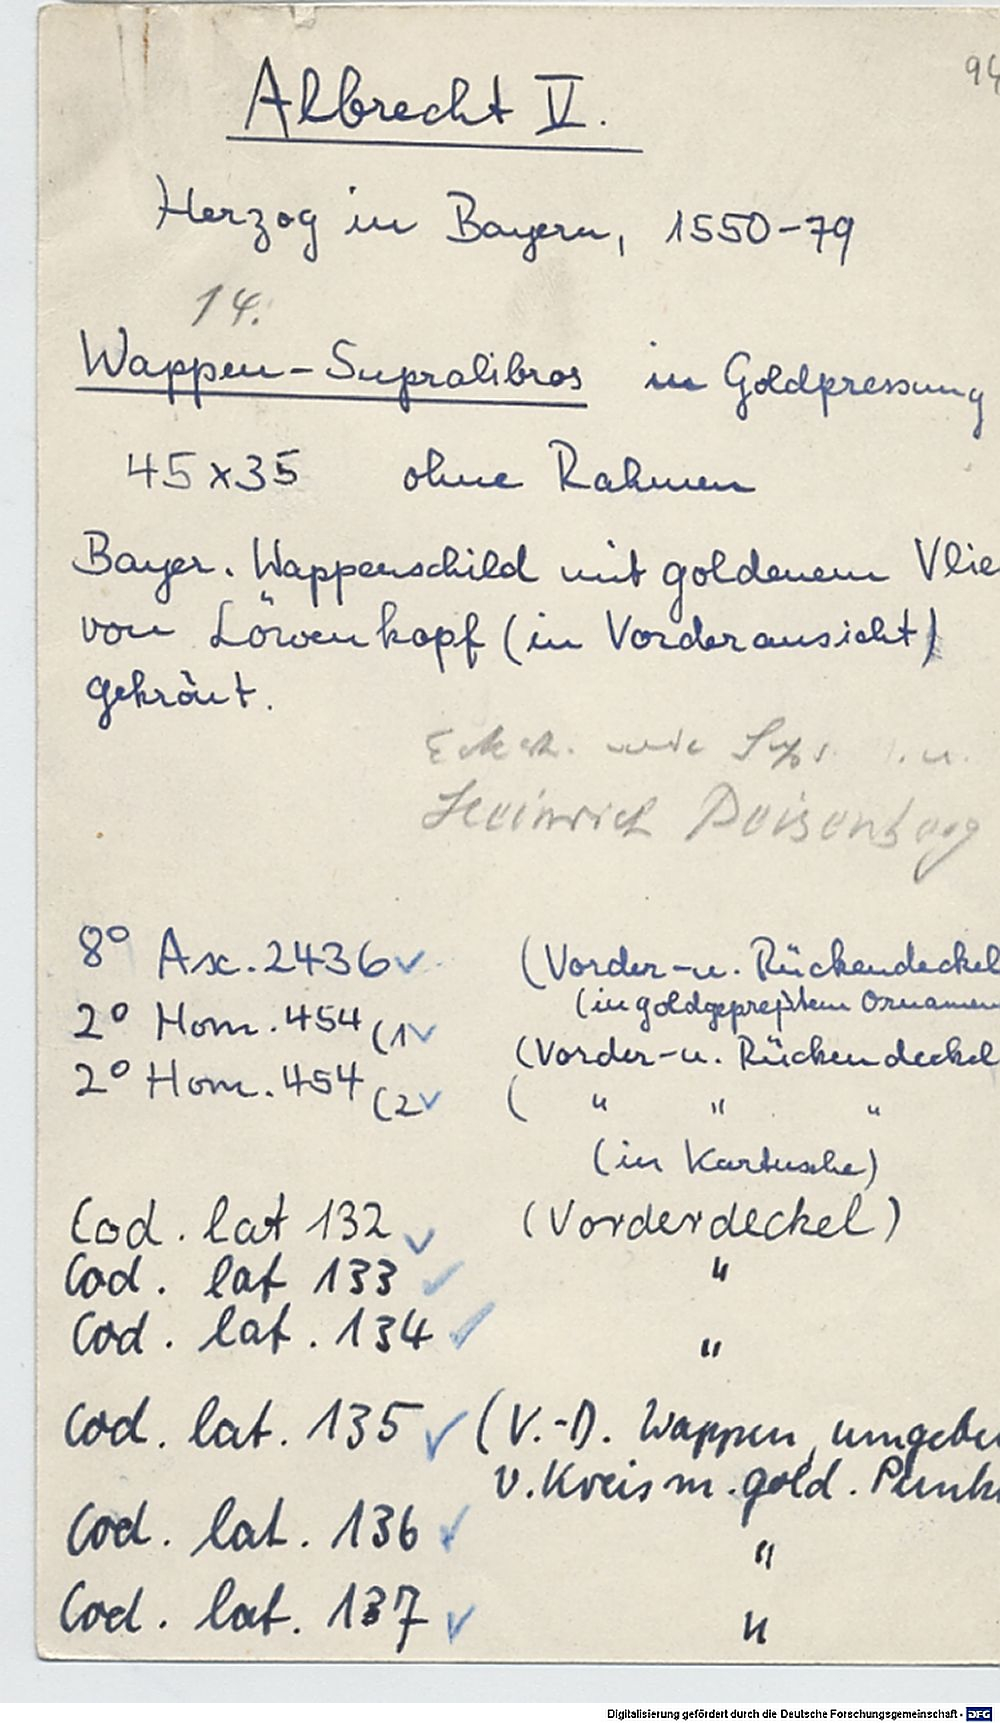 94
Albrecht V.
Herzog in Bayern, 1550-79
14.
Wappen-Supralibros in Goldpressung
45x35 ohne Rahmen
Bayer. Wappenschild mit goldenem Vlie
von Löwenkopf (in Vorderansicht)
gekrönt.
Heinrich
8° Asc. 2436 ✓ (Vorder-u. Rückendeckel
(in goldgepreßtem Ornamen
2° Hom. 454 (1 ✓ (Vorder-u. Rückendeckel
2° Hom. 454 (2 ✓ ( " " "
(in Kartusche)
Cod. lat 132 ✓ (Vorderdeckel)
Cod. lat 133 ✓ "
Cod. lat. 134 ✓ "
Cod. lat. 135 ✓ (V.-D. Wappen, umgeben
v. Kreis m. gold. Punk
Cod. lat. 136 ✓ "
Cod. lat. 137 ✓ "
Digitalisierung gefördert durch die Deutsche Forschungsgemeinschaft - DFG